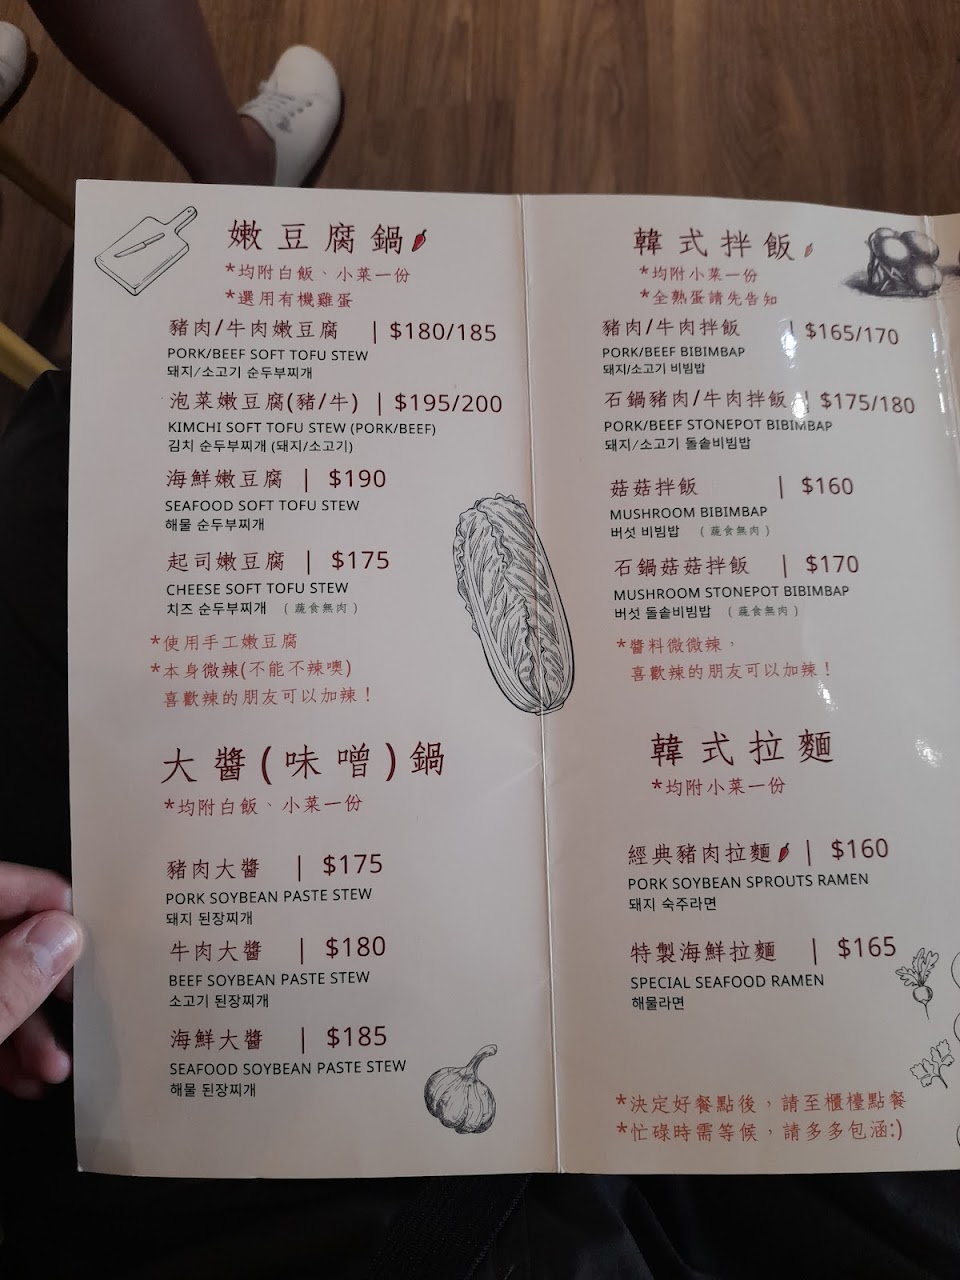 嫩豆腐鍋
*均附白飯、小菜一份
*選用有機雞蛋
豬肉/牛肉嫩豆腐 | $180/185
PORK/BEEF SOFT TOFU STEW
돼지/소고기 순두부찌개
泡菜嫩豆腐(豬/牛) | $195/200
KIMCHI SOFT TOFU STEW (PORK/BEEF)
김치 순두부찌개 (돼지/소고기)
海鮮嫩豆腐 | $190
SEAFOOD SOFT TOFU STEW
해물 순두부찌개
起司嫩豆腐 | $175
CHEESE SOFT TOFU STEW
치즈 순두부찌개 (蔬食無肉)
*使用手工嫩豆腐
*本身微辣(不能不辣噢)
喜歡辣的朋友可以加辣！
大醬(味噌)鍋
*均附白飯、小菜一份
豬肉大醬 | $175
PORK SOYBEAN PASTE STEW
돼지 된장찌개
牛肉大醬 | $180
BEEF SOYBEAN PASTE STEW
소고기 된장찌개
海鮮大醬 | $185
SEAFOOD SOYBEAN PASTE STEW
해물 된장찌개
韓式拌飯
*均附小菜一份
*全熟蛋請先告知
豬肉/牛肉拌飯 | $165/170
PORK/BEEF BIBIMBAP
돼지/소고기 비빔밥
石鍋豬肉/牛肉拌飯 | $175/180
PORK/BEEF STONEPOT BIBIMBAP
돼지/소고기 돌솥비빔밥
菇菇拌飯 | $160
MUSHROOM BIBIMBAP
버섯 비빔밥 (蔬食無肉)
石鍋菇菇拌飯 | $170
MUSHROOM STONEPOT BIBIMBAP
버섯 돌솥비빔밥 (蔬食無肉)
*醬料微微辣，
喜歡辣的朋友可以加辣！
韓式拉麵
*均附小菜一份
經典豬肉拉麵 | $160
PORK SOYBEAN SPROUTS RAMEN
돼지 숙주라면
特製海鮮拉麵 | $165
SPECIAL SEAFOOD RAMEN
해물라면
*決定好餐點後，請至櫃檯點餐
*忙碌時需等候，請多多包涵:)